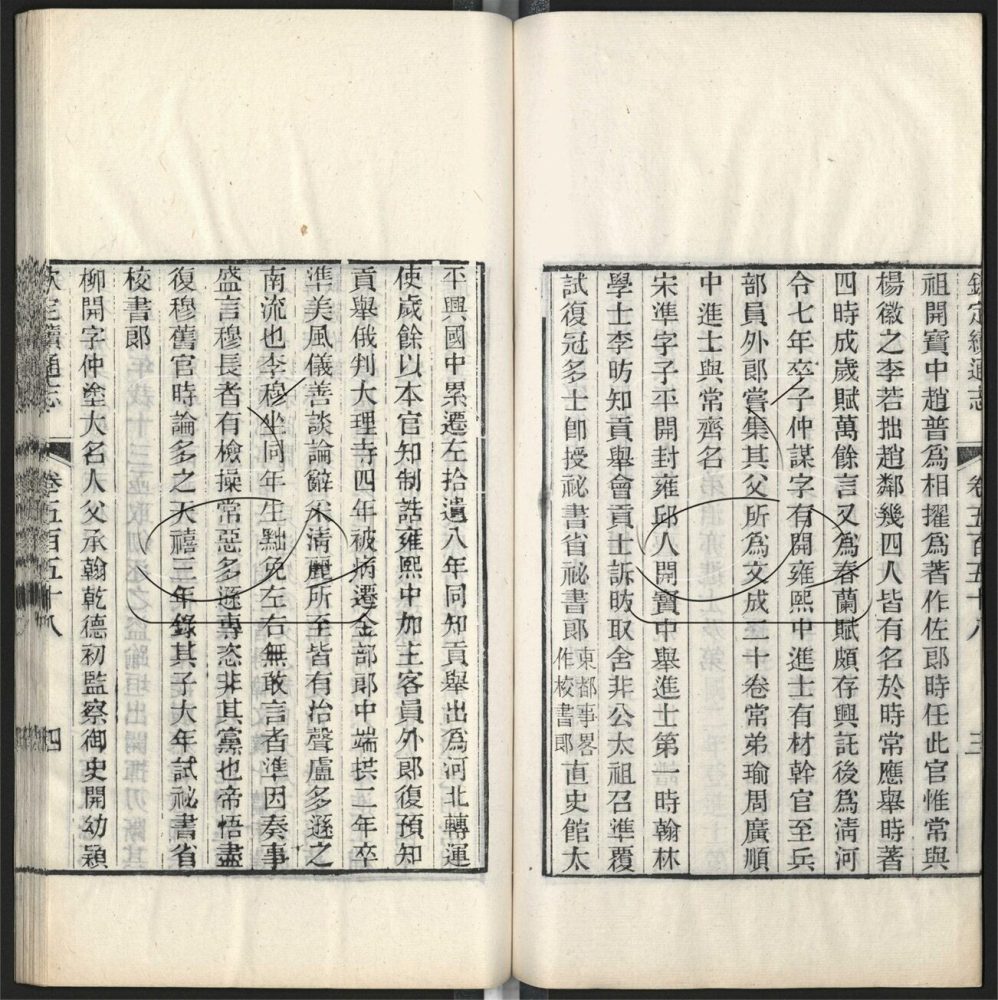 欽定續通志 卷五百五十八 三
祖開寶中趙普爲相擢爲著作佐郎時任此官惟常與
楊徽之李若拙趙鄰幾四人皆有名於時常應舉時著
四時成歲賦萬餘言又爲春蘭賦頗存興託後爲淸河
令七年卒子仲謀字有開雍熙中進士有材幹官至兵
部員外郎嘗集其父所爲文成二十卷常弟瑜周廣順
中進士與常齊名
宋準字子平開封雍邱人開寶中舉進士第一時翰林
學士李昉知貢舉會貢士訴昉取舍非公太祖召準覆
試復冠多士卽授祕書省祕書郎東都事畧作校書郎直史館太
平興國中累遷左拾遺八年同知貢舉出爲河北轉運
使歲餘以本官知制誥雍熙中加主客員外郎復預知
貢舉俄判大理寺四年被病遷金部郎中端拱二年卒
準美風儀善談論辭采淸麗所至皆有治聲盧多遜之
南流也李穆坐同年生黜免左右無敢言者準因奏事
盛言穆長者有檢操常惡多遜專恣非其黨也帝悟盡
復穆舊官時論多之天禧三年錄其子大年試祕書省
校書郎
柳開字仲塗大名人父承翰乾德初監察御史開幼穎
欽定續通志 卷五百五十八 四